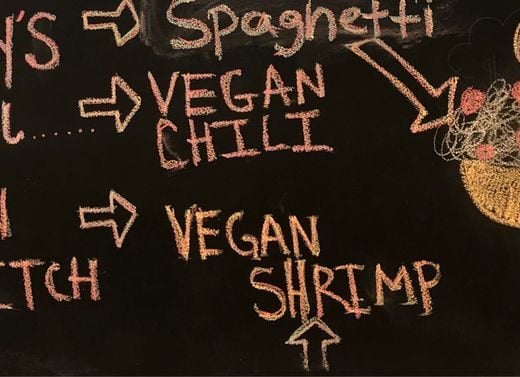 Y'S Spaghetti
VEGAN
CHILI
VEGAN
SHRIMP
TCH